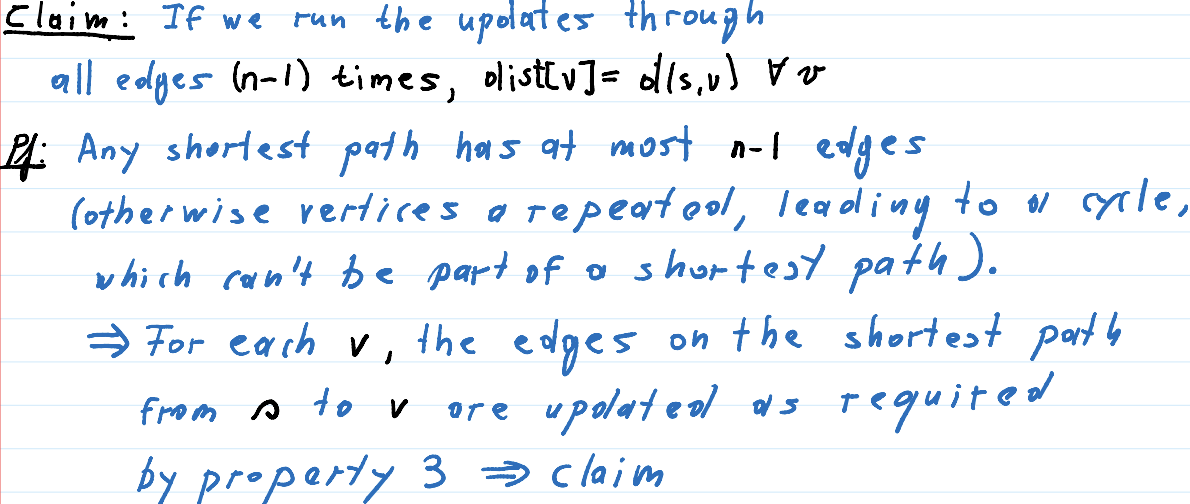 Claim: If we run the updates through
all edges (n-1) times, dist[v] = d(s,v) ∀ v
Pf: Any shortest path has at most n-1 edges
(otherwise vertices a repeated, leading to a cycle,
which can't be part of a shortest path).
⇒ For each v, the edges on the shortest path
from s to v are updated as required
by property 3 ⇒ claim